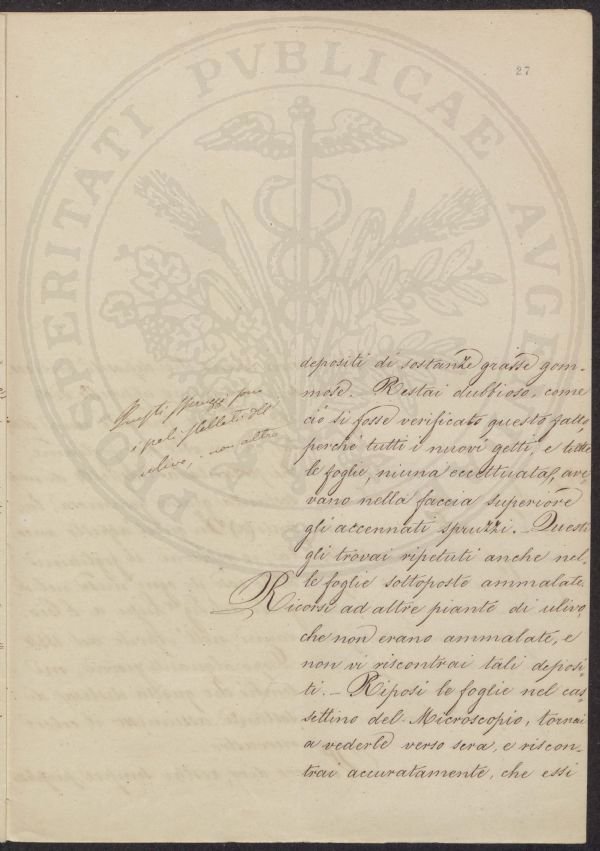 27
PROSPERITATI PVBLICAE AVGE
Questi spruzzi sono
i peli stellati dell'
ulivo, non altro
depositi di sostanze grasse gom-
mose. Restai dubbioso, come
ciò si fosse verificato questo fatto
perchè tutti i nuovi getti, e tutte
le foglie, niuna eccettuata, ave-
vano nella faccia superiore
gli accennati spruzzi. _ Questi
gli trovai ripetuti anche nel-
le foglie sottoposte ammalate.
Ricorsi ad altre piante di ulivo,
che non erano ammalate, e
non vi riscontrai tali deposi-
ti. _ Riposi le foglie nel cas-
settino del Microscopio, tornai
a vederle verso sera, e riscon-
trai accuratamente, che essi